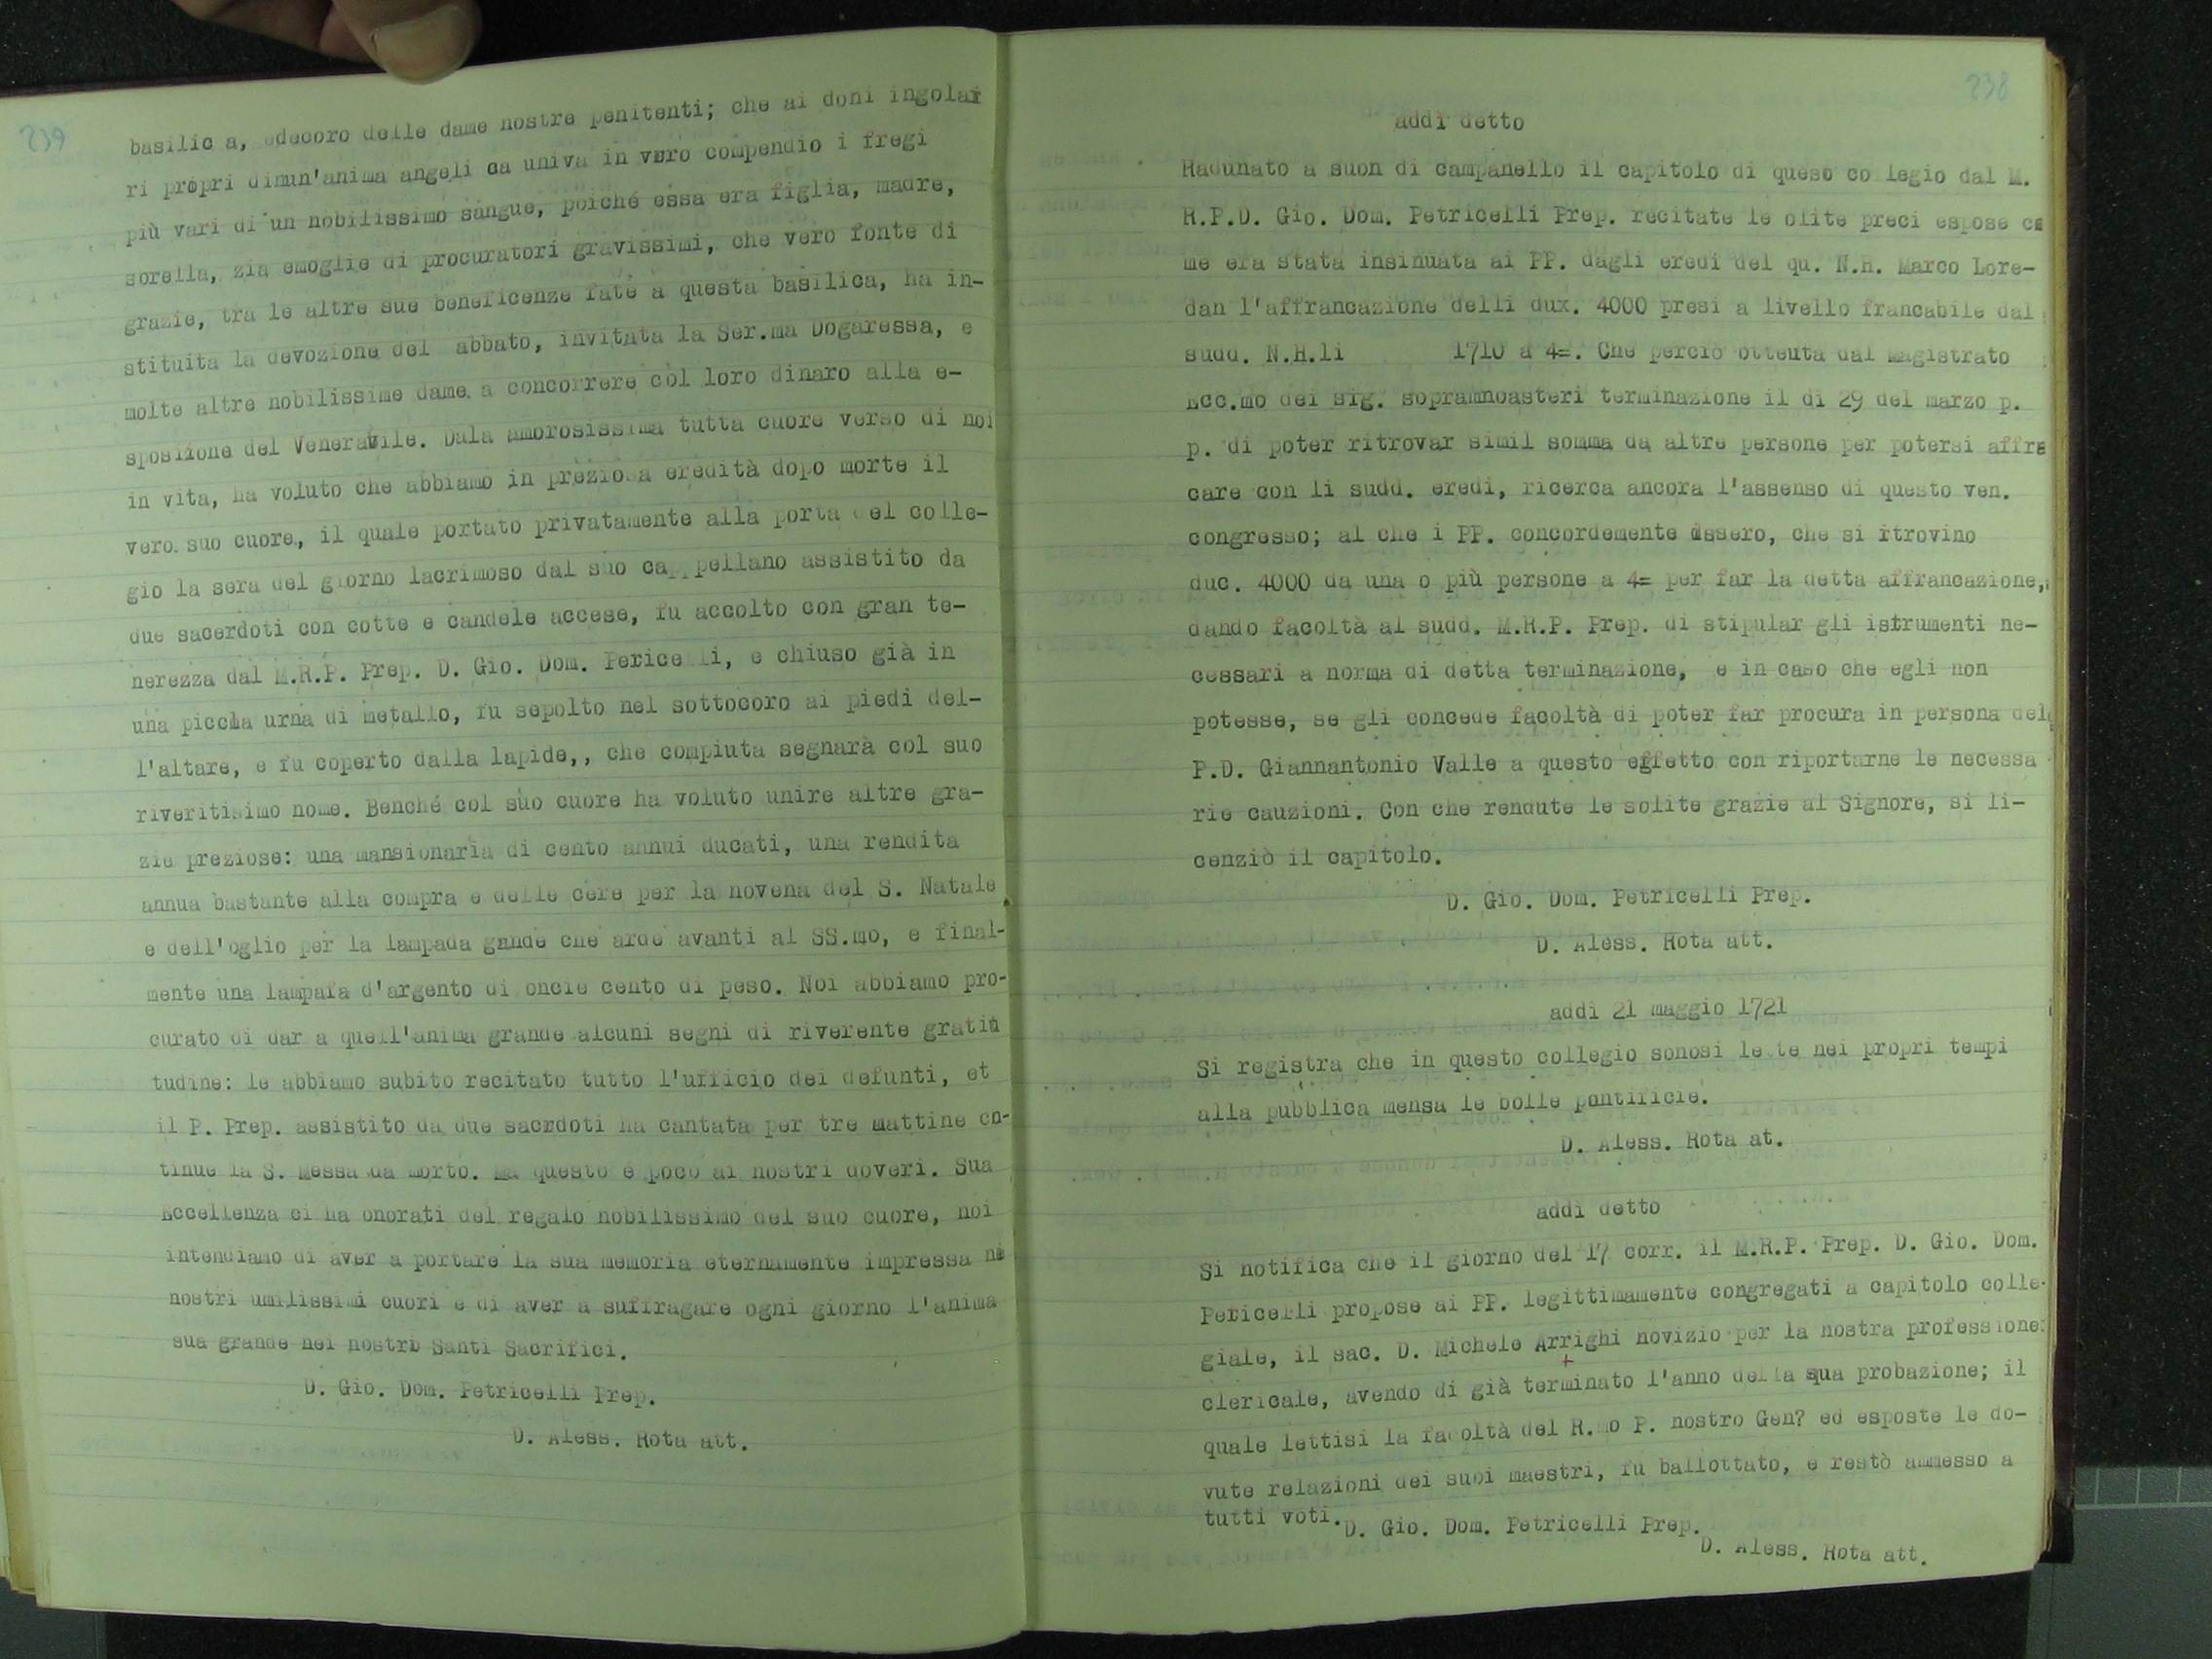 239
basilic a, edecoro delle dame nostre penitenti; che ai doni ingolar
ri propri dimun'anima angeli ca univa in vero compendio i fregi
più vari di un nobilissimo sangue, poiché essa era figlia, madre,
sorella, zia emoglie di procuratori gravissimi, che vero fonte di
grazie, tra le altre sue beneficenze fate a questa basilica, ha in-
stituita la devozione del abbato, invitata la Ser.ma Dogaressa, e
molte altre nobilissime dame a concorrere còl loro dinaro alla e-
sposiione del Venerabile. Dala amorosissima tutta cuore verso di noi
in vita, ha voluto che abbiamo in preziosa eredità dopo morte il
vero suo cuore, il quale portato privatamente alla porta del colle-
gio la sera del giorno lacrimoso dal suo cappellano assistito da
due sacerdoti con cotte e candele accese, fu accolto con gran te-
nerezza dal M.R.P. Prep. D. Gio. Dom. Pericelli, e chiuso già in
una piccla urna di metallo, fu sepolto nel sottocoro ai piedi del-
l'altare, e fu coperto dalla lapide,, che compiuta segnarà col suo
riveritisimo nome. Benché col sùo cuore ha voluto unire altre gra-
zie preziose: una mansionaria di cento annui ducati, una rendita
annua bastante alla compra e delle cere per la novena del S. Natale
e dell'oglio per la lampada grnde che arde avanti al SS.mo, e final-
mente una lampafa d'argento di oncie cento di peso. Noi abbiamo pro-
curato di dar a quell'anima grande alcuni segni di riverente gratiu
tudine: le abbiamo subito recitato tutto l'ufficio dei defunti, et
il P. Prep. assistito da due sacrdoti ha cantata per tre mattine co-
tinue la S. Messa da morto. Ma questo è poco ai nostri doveri. Sua
Eccellenza ci ha onorati del regalo nobilissimo del suo cuore, noi
intendiamo di aver a portare la sua memoria eternamente impressa ne
nostri umilissimi cuori e di aver a suffragare ogni giorno l'anima
sua grande nei nostri Santi Sacrifici.
D. Gio. Dom. Petricelli Prep.
D. Aless. Rota att.
238
addì detto
Radunato a suon di campanello il capitolo di queso co legio dal M.
R.P.D. Gio. Dom. Petricelli Prep. recitate le olite preci espose co
me era stata insinuata ai PP. dagli eredi del qu. N.H. Marco Lore-
dan l'affrancazione delli dux. 4000 presi a livello francabile dal
sudd. N.H.li 1710 a 4=. Che perciò otteuta dal Magistrato
Ecc.mo dei sig. sopramnoasteri terminazione il dì 29 del marzo p.
p. di poter ritrovar simil somma da altre persone per potersi affra
care con li sudd. eredi, ricerca ancora l'assenso di questo ven.
congresso; al che i PP. concordemente dssero, che si itrovino
duc. 4000 da una o più persone a 4= per far la detta affrancazione,
dando facoltà al sudd. M.R.P. Prep. di stipular gli istrumenti ne-
cessari a norma di detta terminazione, e in caso che egli non
potesse, se gli concede facoltà di poter far procura in persona del
P.D. Giannantonio Valle a questo effetto con riportarne le necessa
rie cauzioni. Con che rendute le solite grazie al Signore, si li-
cenziò il capitolo.
D. Gio. Dom. Petricelli Prep.
D. Aless. Rota att.
addì 21 maggio 1721
Si registra che in questo collegio sonosi lette nei propri tempi
alla pubblica mensa le bolle pontificie.
D. Aless. Rota at.
addì detto
Si notifica che il giorno del 17 corr. il M.R.P. Prep. D. Gio. Dom.
Pericelli propose ai PP. legittimamente congregati a capitolo colle-
giale, il sac. D. Michele Arrighi novizio per la nostra professione
clericale, avendo di già terminato l'anno della sua probazione; il
quale lettisi la facoltà del R.mo P. nostro Gen? ed esposte le do-
vute relazioni dei suoi maestri, fu ballottato, e restò ammesso a
tutti voti.
D. Gio. Dom. Petricelli Prep.
D. Aless. Rota att.